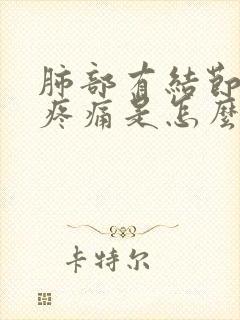 肺部有結節
疼痛是怎麼
卡特尔